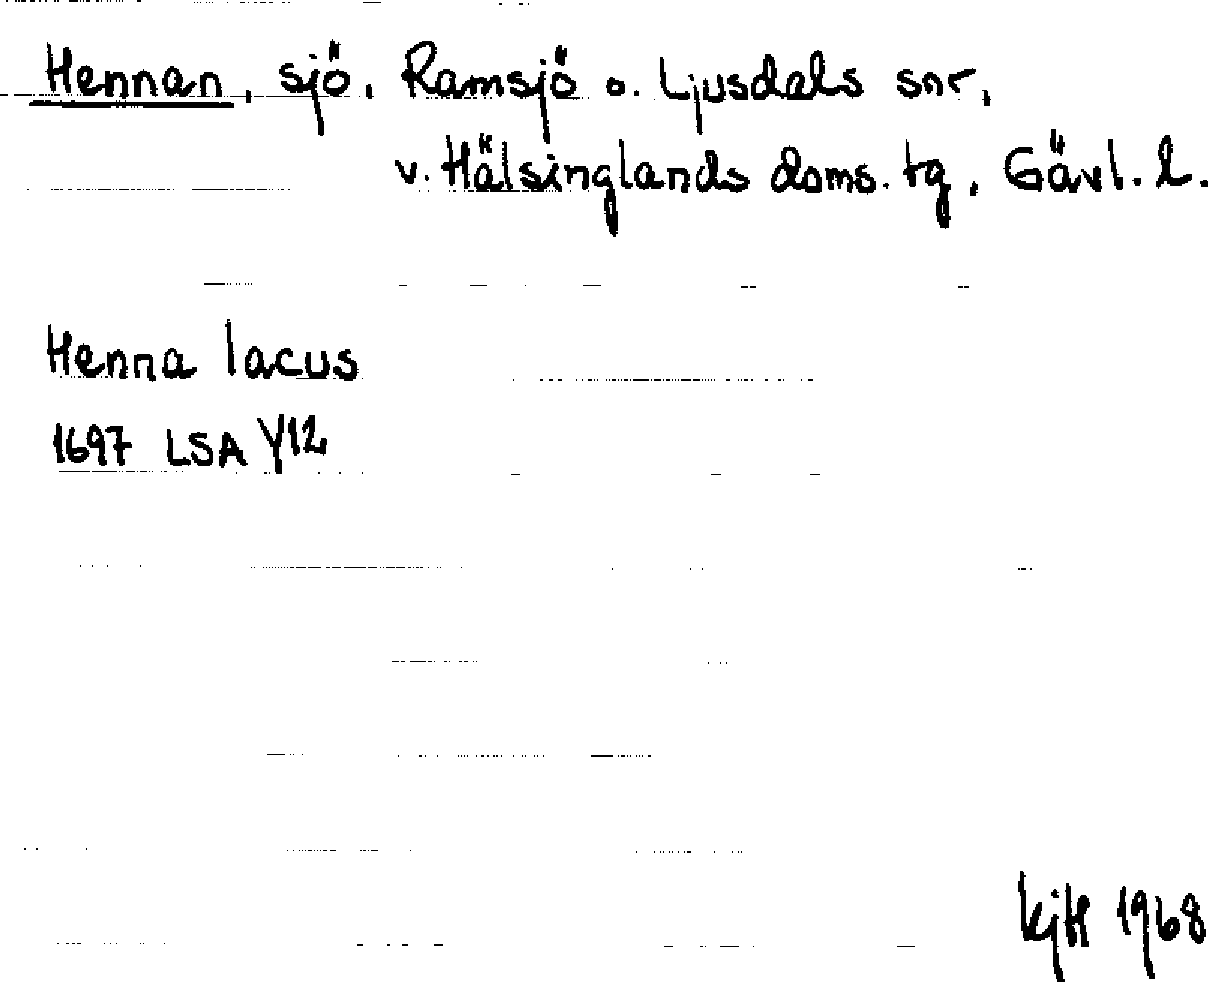 Hennan, sjö, Ramsjö o. Ljusdals snr,
v. Hälsinglands doms. tg, Gävl. l.
Henna lacus
1697 LSA Y12
kjH 1968